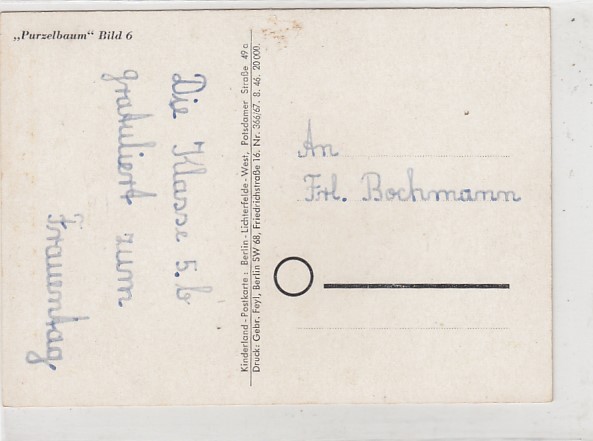 „Purzelbaum“ Bild 6
Die Klasse 5.b
gratuliert zum
Frauentag
Kinderland-Postkarte: Berlin-Lichterfelde-West, Potsdamer Straße 49c
Druck: Gebr. Feyl, Berlin SW 68, Friedrichstraße 16. Nr. 366/67. 8. 46. 20000.
An
Frl. Bochmann